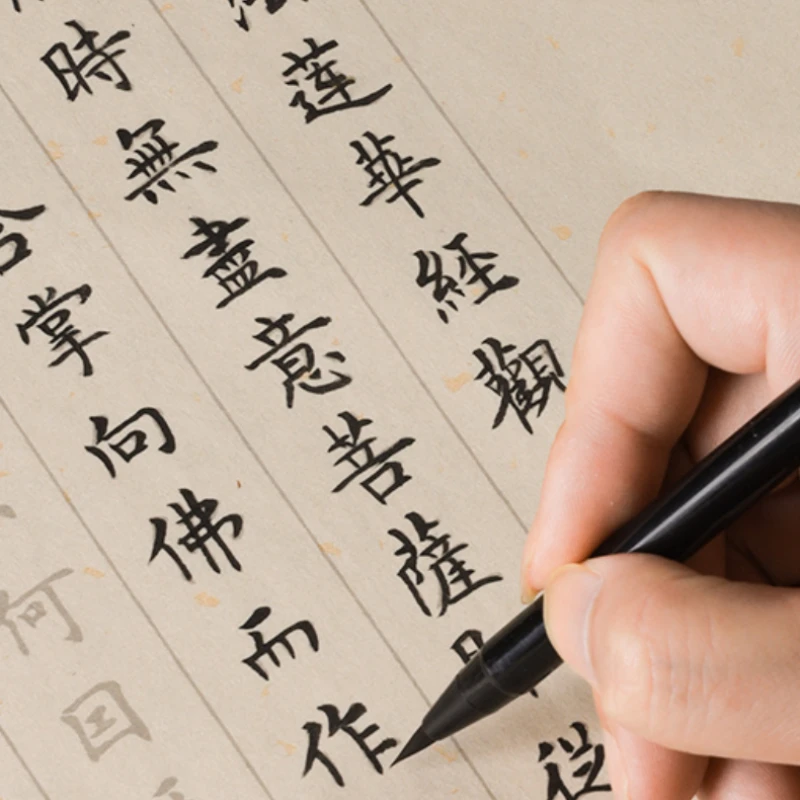 蓮華經觀
時無盡意菩薩從
合掌向佛而作
何因